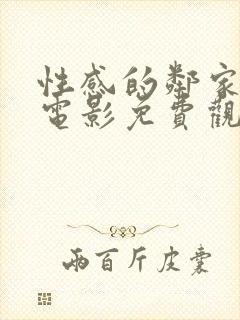 性感的鄰家
電影免費觀
兩百斤皮囊